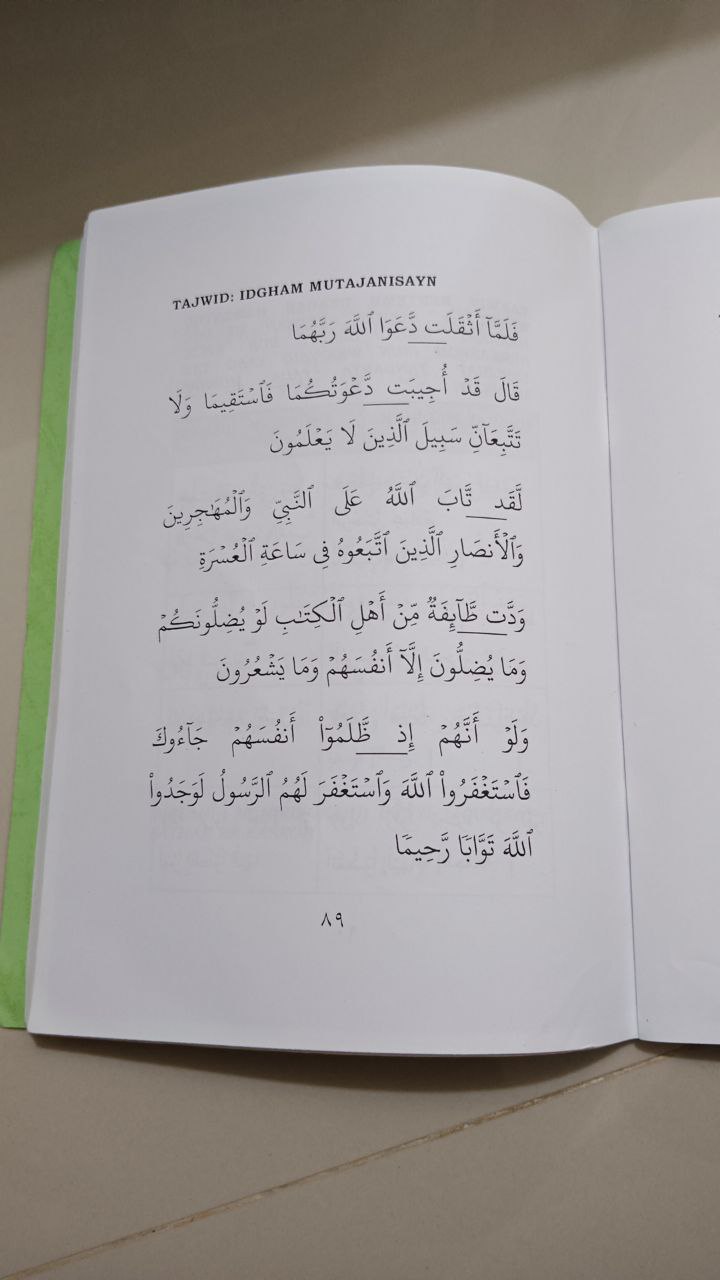 TAJWID: IDGHAM MUTAJANISAYN
فَلَمَّآ أَثۡقَلَت دَّعَوَا ٱللَّهَ رَبَّهُمَا
قَالَ قَدۡ أُجِيبَت دَّعۡوَتُكُمَا فَٱسۡتَقِيمَا وَلَا
تَتَّبِعَآنِّ سَبِيلَ ٱلَّذِينَ لَا يَعۡلَمُونَ
لَّقَد تَّابَ ٱللَّهُ عَلَى ٱلنَّبِيِّ وَٱلۡمُهَٰجِرِينَ
وَٱلۡأَنصَارِ ٱلَّذِينَ ٱتَّبَعُوهُ فِى سَاعَةِ ٱلۡعُسۡرَةِ
وَدَّت طَّآئِفَةٌ مِّنۡ أَهۡلِ ٱلۡكِتَٰبِ لَوۡ يُضِلُّونَكُمۡ
وَمَا يُضِلُّونَ إِلَّآ أَنفُسَهُمۡ وَمَا يَشۡعُرُونَ
وَلَوۡ أَنَّهُمۡ إِذ ظَّلَمُوٓاْ أَنفُسَهُمۡ جَآءُوكَ
فَٱسۡتَغۡفَرُواْ ٱللَّهَ وَٱسۡتَغۡفَرَ لَهُمُ ٱلرَّسُولُ لَوَجَدُواْ
ٱللَّهَ تَوَّابًا رَّحِيمًا
٨٩